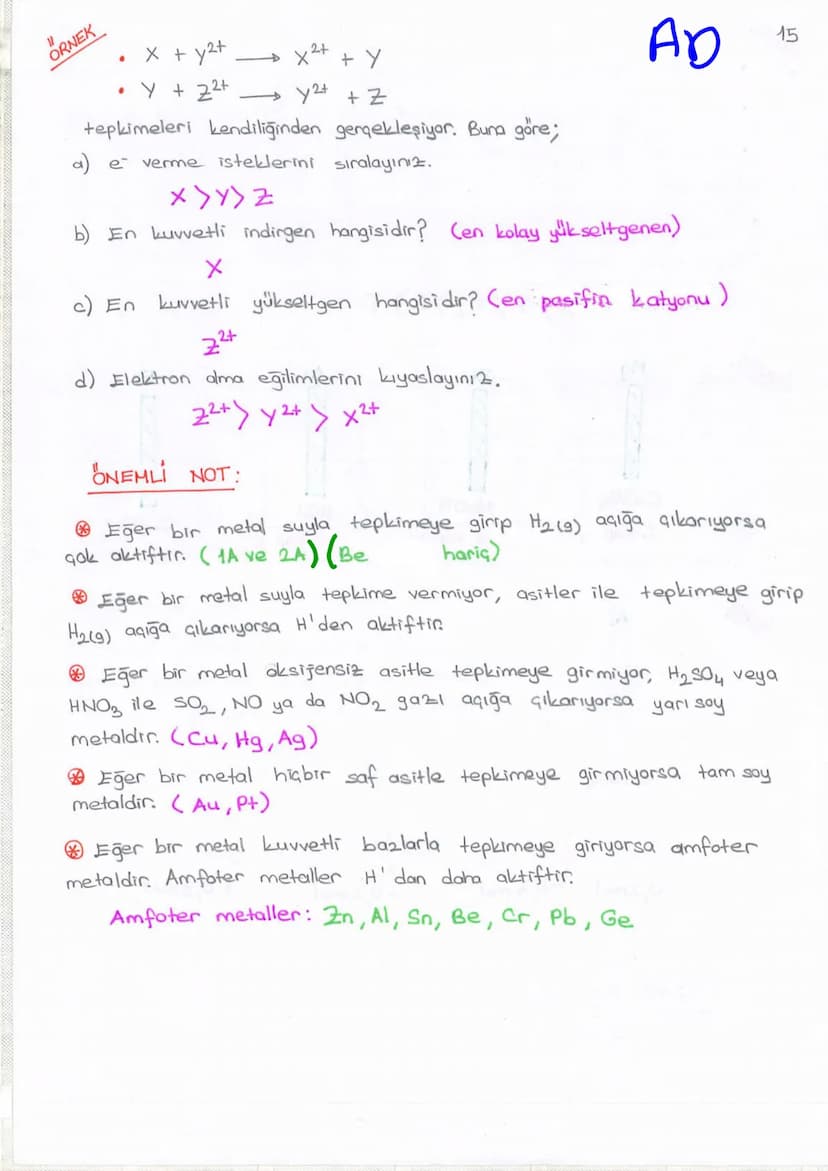 ÖRNEK
AD
15
• X + Y²⁺ ⟶ X²⁺ + Y
• Y + Z²⁺ ⟶ Y²⁺ + Z
tepkimeleri kendiliğinden gerçekleşiyor. Buna göre;
a) e⁻ verme isteklerini sıralayınız.
X > Y > Z
b) En kuvvetli indirgen hangisidir? (en kolay yükseltgenen)
X
c) En kuvvetli yükseltgen hangisidir? (en pasifin katyonu)
Z²⁺
d) Elektron alma eğilimlerini kıyaslayınız.
Z²⁺ > Y²⁺ > X²⁺
ÖNEMLİ NOT:
⊛ Eğer bir metal suyla tepkimeye girip H₂(g) açığa çıkarıyorsa
çok aktiftir. (1A ve 2A) (Be hariç)
⊛ Eğer bir metal suyla tepkime vermiyor, asitler ile tepkimeye girip
H₂(g) açığa çıkarıyorsa H'den aktiftir.
⊛ Eğer bir metal oksijensiz asitle tepkimeye girmiyor, H₂SO₄ veya
HNO₃ ile SO₂, NO ya da NO₂ gazı açığa çıkarıyorsa yarı soy
metaldir. (Cu, Hg, Ag)
⊛ Eğer bir metal hiçbir saf asitle tepkimeye girmiyorsa tam soy
metaldir. (Au, Pt)
⊛ Eğer bir metal kuvvetli bazlarla tepkimeye giriyorsa amfoter
metaldir. Amfoter metaller H'dan daha aktiftir.
Amfoter metaller: Zn, Al, Sn, Be, Cr, Pb, Ge